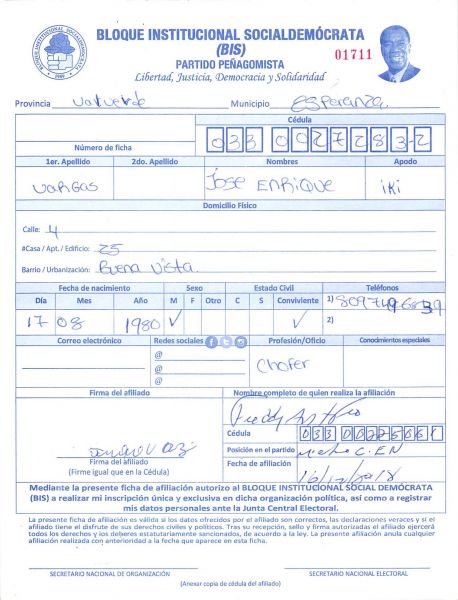 BLOQUE INSTITUCIONAL SOCIALDEMÓCRATA
(BIS)
PARTIDO PEÑAGOMISTA
Libertad, Justicia, Democracia y Solidaridad
01711
Provincia Valverde Municipio Esperanza
Cédula
Número de ficha 033 0027283-2
1er. Apellido 2do. Apellido Nombres Apodo
Vargas José Enrique iki
Domicilio Físico
Calle: 4
#Casa / Apt. / Edificio: 25
Barrio / Urbanización: Buena Vista
Fecha de nacimiento Sexo Estado Civil Teléfonos
Día Mes Año M F Otro C S Conviviente 1) 809 749 6839
17 08 1980 V V 2)
Correo electrónico Redes sociales Profesión/Oficio Conocimientos especiales
@
@
@
Chofer
Firma del afiliado Nombre completo de quien realiza la afiliación
Freddy
Cédula 033
Firma del afiliado Posición en el partido C.EN
(Firme igual que en la Cédula) Fecha de afiliación
16/12/2018
Mediante la presente ficha de afiliación autorizo al BLOQUE INSTITUCIONAL SOCIAL DEMÓCRATA
(BIS) a realizar mi inscripción única y exclusiva en dicha organización política, así como a registrar
mis datos personales ante la Junta Central Electoral.
La presente ficha de afiliación es válida si los datos ofrecidos por el afiliado son correctos, las declaraciones veraces y si el
afiliado tiene el disfrute de sus derechos civiles y políticos. Tras su recepción, sello y firma autorizadas el afiliado ejercerá
todos los derechos y los deberes estatutariamente sancionados, de acuerdo a la ley. La presente afiliación anula cualquier
afiliación realizada con anterioridad a la fecha que aparece en esta ficha.
SECRETARIO NACIONAL DE ORGANIZACIÓN SECRETARIO NACIONAL ELECTORAL
(Anexar copia de cédula del afiliado)